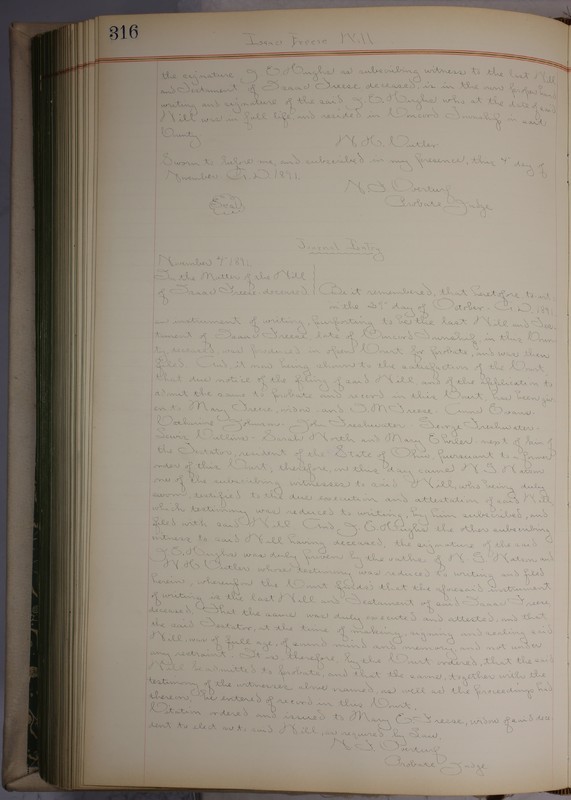 316
Isaac Freese Will
the signature of J. E. Hughes as subscribing witness to the last Will
and Testament of Isaac Freese deceased, is in the own proper hand
writing and signature of the said J. E. Hughes who at the date of said
Will was in full life and resided in Concord Township in said
County.
W. H. Cutler
Sworn to before me, and subscribed in my presence, this 7 day of
November A.D. 1891.
Probate Judge
Journal Entry
November 7, 1891
In the Matter of the Will
of Isaac Freese deceased
Be it remembered, that heretofore to-wit:
in the day of October A.D. 1891
an instrument of writing, purporting to be the last Will and Tes-
tament of Isaac Freese late of Concord Township, in this Coun-
ty, deceased, was produced in open Court for probate, and was then
filed. And, it now being shown to the satisfaction of the Court,
that due notice of the filing of said Will, and of the application to
admit the same to probate and record in this Court, has been giv-
en to Mary Freese, widow and Freese
John Freshwater, George Freshwater,
Sarah North and Mary next of kin of
the Testator, resident of the State of Ohio pursuant to a former
order of this Court; therefore, on this day came
one of the subscribing witnesses to said Will, who being duly
sworn, testified to the due execution and attestation of said Will
which testimony was reduced to writing, by him subscribed, and
filed with said Will. And, J. E. Hughes the other subscribing
witness to said Will having deceased, the signature of the said
J. E. Hughes was duly proven by the oaths of and
W. H. Cutler, whose testimony was reduced to writing and filed
herein, whereupon the Court finds that the aforesaid instrument
of writing is the last Will and Testament of said Isaac Freese,
deceased. That the same was duly executed and attested, and that
the said Testator, at the time of making, signing and sealing said
Will was of full age, of sound mind and memory, and not under
any restraint. It is, therefore, by the Court ordered, that the said
Will be admitted to probate, and that the same, together with the
testimony of the witnesses above named, as well as the proceedings had
thereon, be entered of record in this Court.
Citation ordered and issued to Mary E. Freese, widow of said dece-
dent to elect as to said Will, as required by law.
Probate Judge